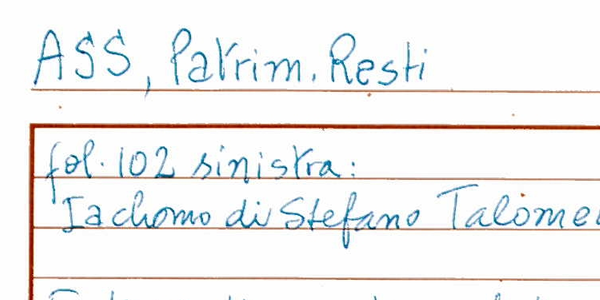 ASS, Patrim. Resti
fol. 102 sinistra:
Iachomo di Stefano